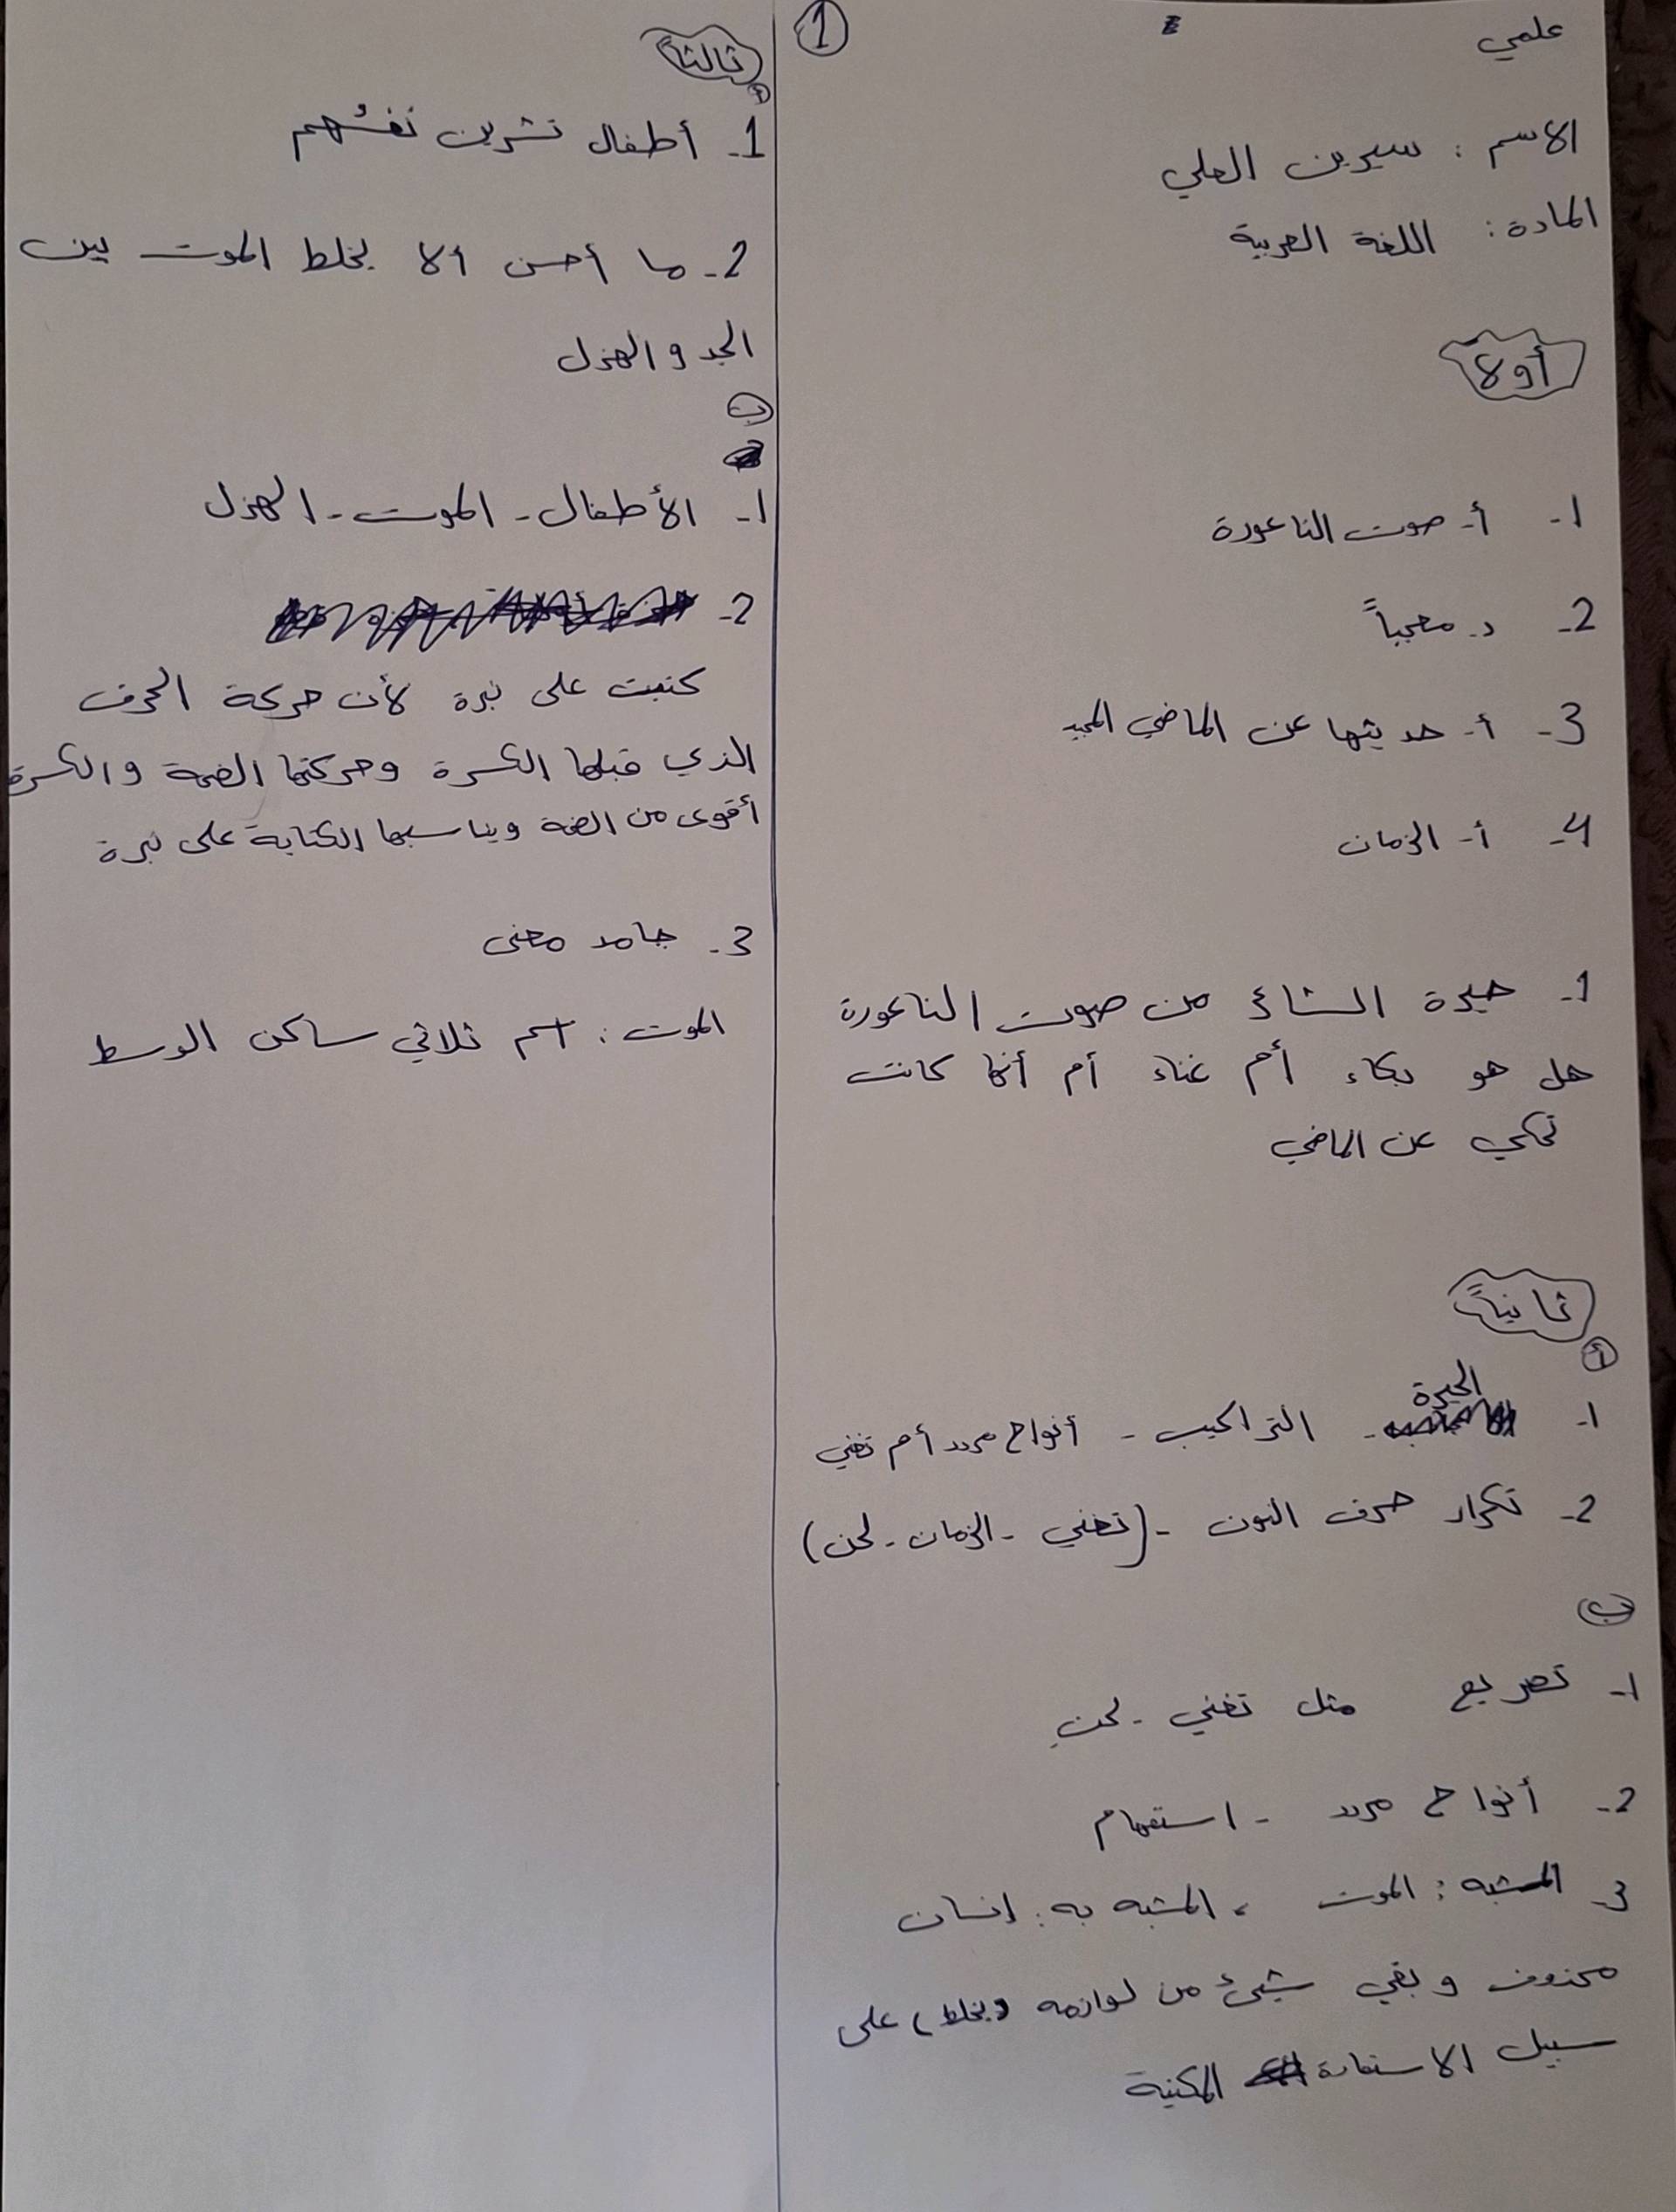 علمي
1
الاسم : سيرين العلي
المادة : اللغة العربية
أولا
1- أ- صوت الناعورة
2- د. معجباً
3- أ- حديثها عن الماضي المجيد
4- أ- الزمان
1- حيرة الشاعر من صوت الناعورة
هل هو بكاء أم غناء أم أنها كانت
تحكي عن الماضي
ثانياً
أ
1- الحيرة - التراكيب - أنواح مردد أم تغني
2- تكرار حرف النون - (تغني - الزمان - لحن)
ب
1- تصريع مثل تغني - لحنِ
2- أنواح مردد - استفهام
3- المشبه : الموت ، المشبه به : إنسان
محذوف وبقي شيئ من لوازمه (يخلط) على
سبيل الاستعارة المكنية
ثالثاً
أ
1- أطفال تشرين نفسُهم
2- ما أحسن ألا يخلط الموت بين
الجد و الهزل
ب
1- الأطفال - الموت - الهزل
2-
كتبت على نبرة لأن حركة الحرف
الذي قبلها الكسرة وحركتها الضمة والكسرة
أقوى من الضمة ويناسبها الكتابة على نبرة
3- جامد معنى
الموت : اسم ثلاثي ساكن الوسط